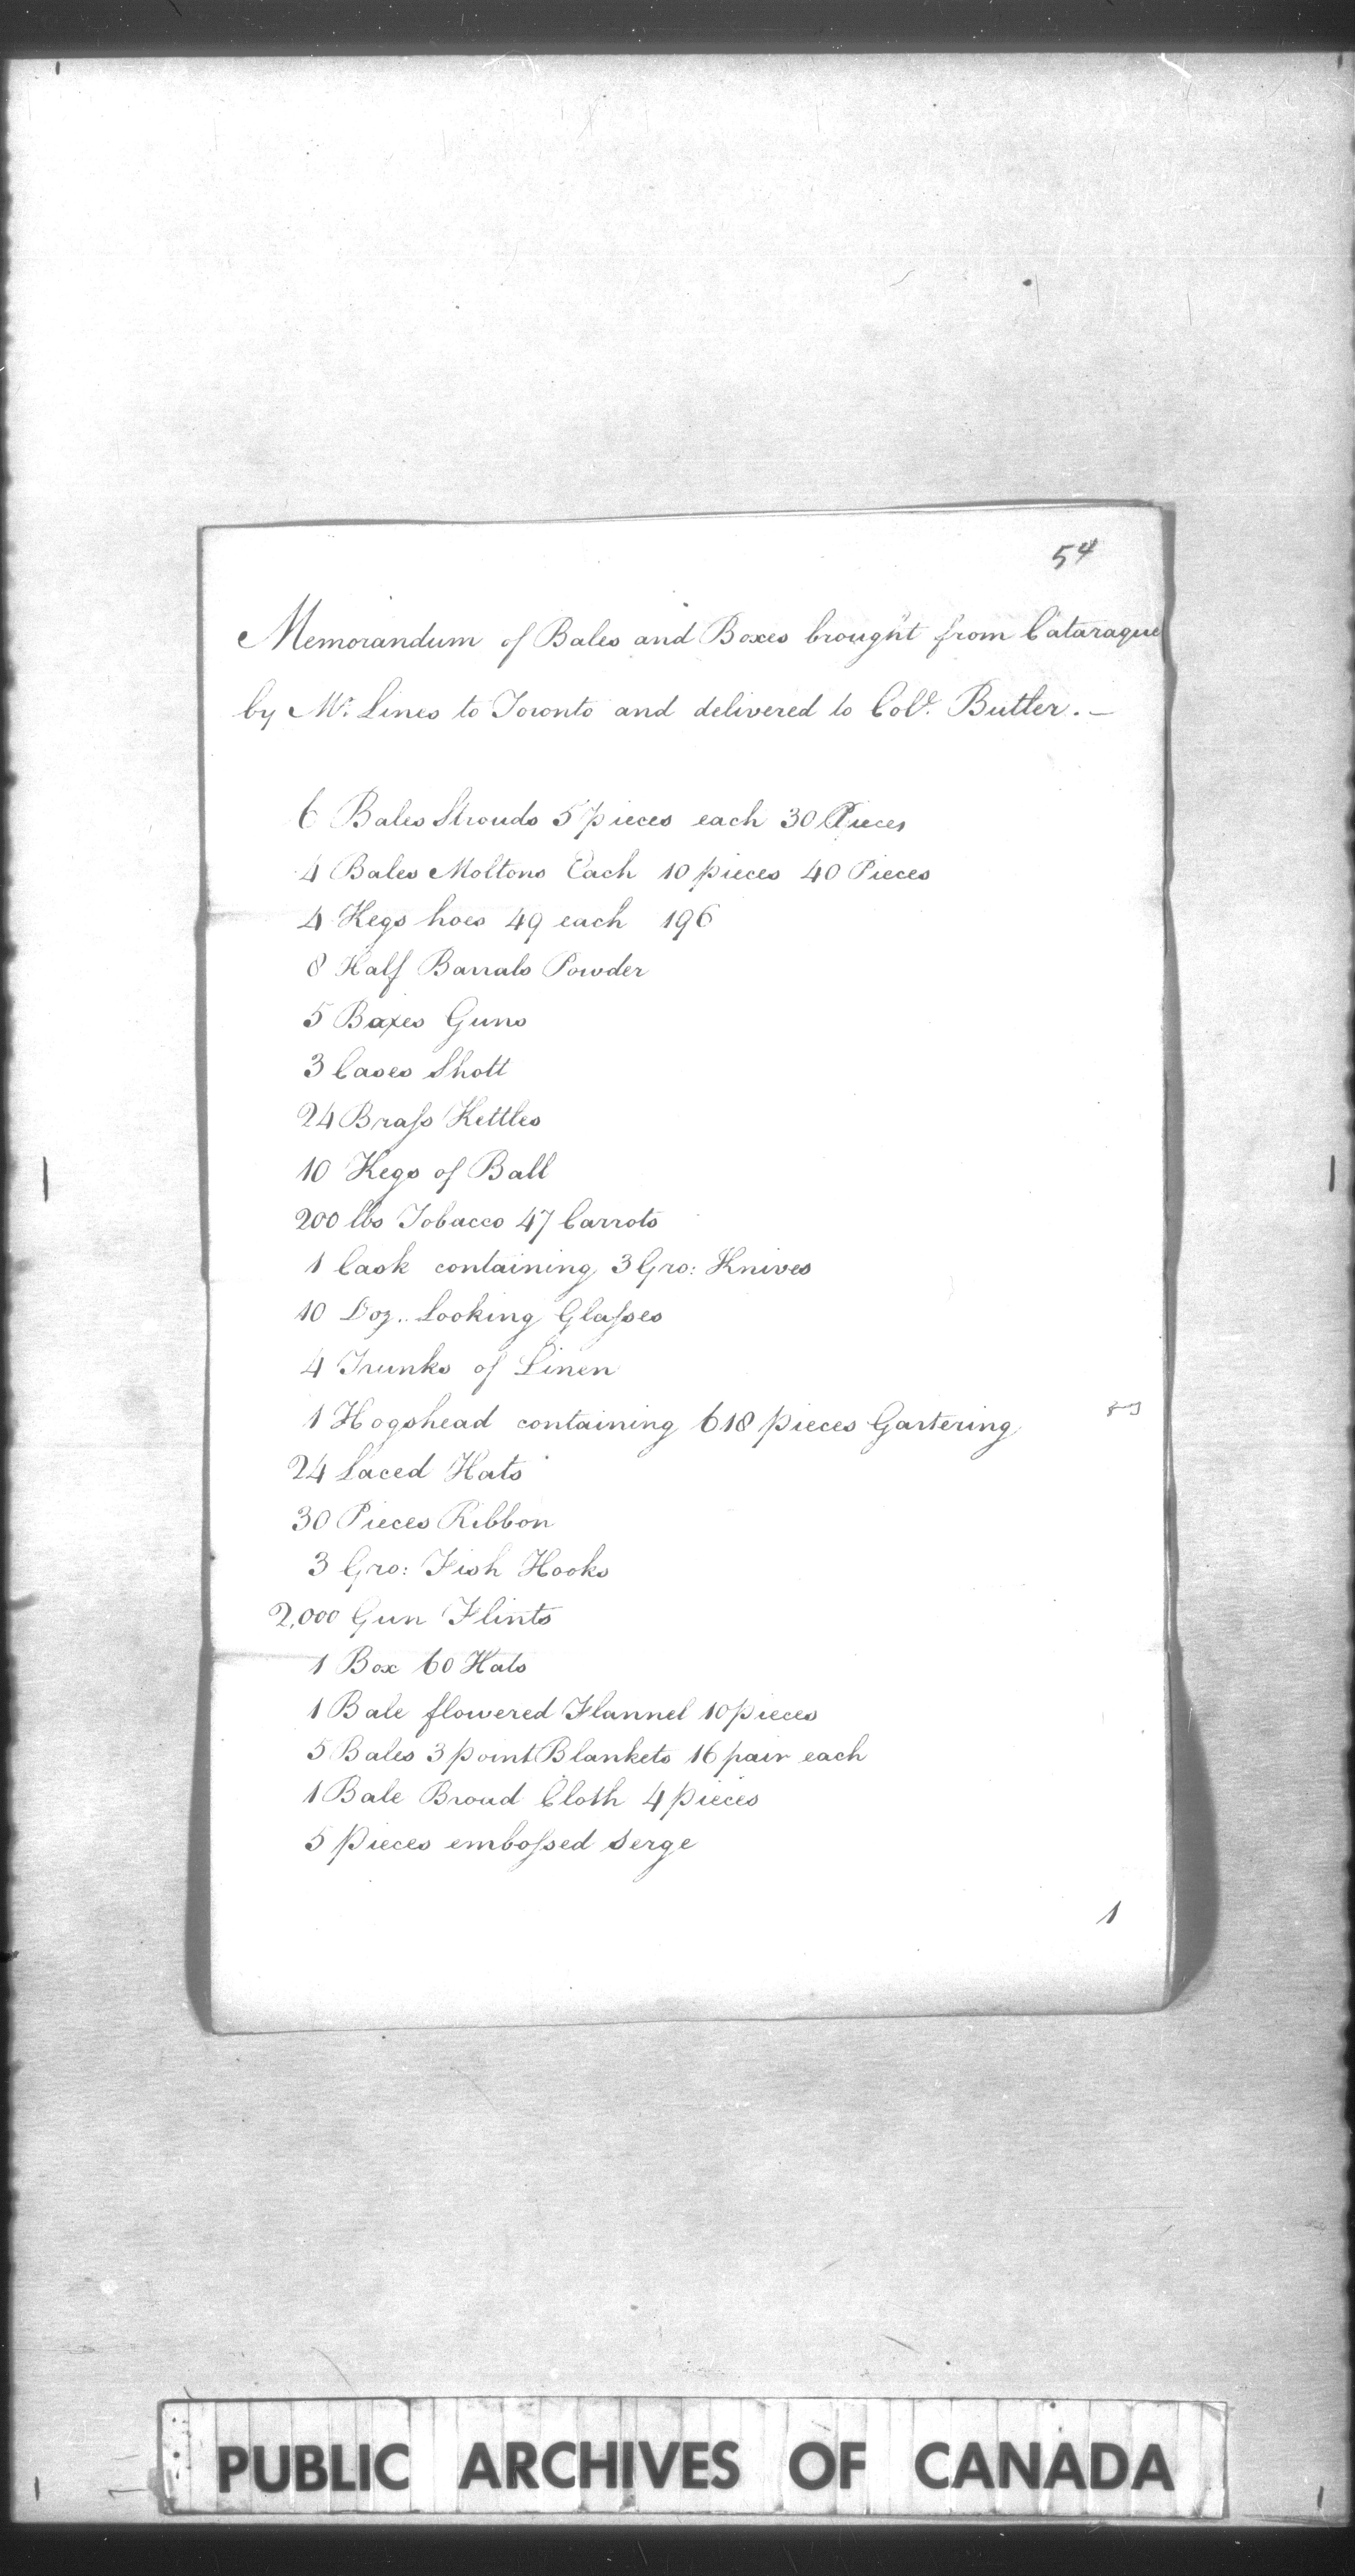 54
Memorandum of Bales and Boxes brought from Cataraque
by Mr. Lines to Toronto and delivered to Colo. Butler. —
6 Bales Strouds 5 pieces each 30 Pieces
4 Bales Moltons Each 10 pieces 40 Pieces
4 Kegs hoes 49 each 196
8 Half Barrals Powder
5 Boxes Guns
3 Cases Shott
24 Brass Kettles
10 Kegs of Ball
200 lbs Tobacco 47 Carrots
1 Cask containing 3 Gro: Knives
10 Doz.. Looking Glasses
4 Trunks of Linen
1 Hogshead containing 618 pieces Gartering
24 Laced Hats
30 Pieces Ribbon
3 Gro: Fish Hooks
2,000 Gun Flints
1 Box 60 Hats
1 Bale flowered Flannel 10 pieces
5 Bales 3 point Blankets 16 pair each
1 Bale Broad Cloth 4 pieces
5 pieces embossed Serge
1
PUBLIC ARCHIVES OF CANADA